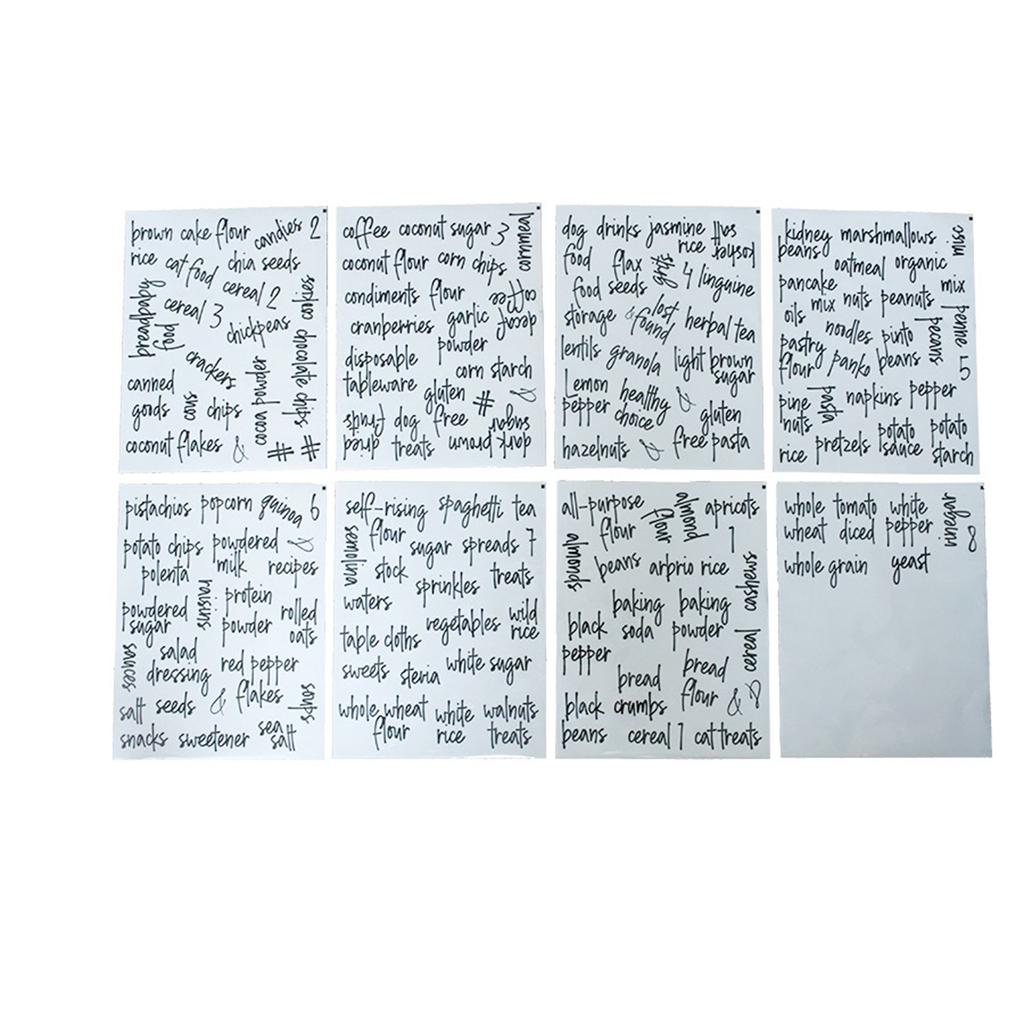 brown cake flour candies 2
rice cat food chia seeds
cereal 2
breadbaby cereal 3 cookies
hog chickpeas
crackers chocolate chips
canned cocoa powder
goods cous chips
coconut flakes & # #
coffee coconut sugar 3 cornmeal
coconut flour corn chips
condiments flour coffee
cranberries garlic decaf
disposable powder
tableware corn starch
gluten # &
dried fruits dog free dark brown sugar
treats
dog drinks jasmine kosher salt
food flax rice
gifts 4 linguine
food seeds
storage & lost found herbal tea
lentils granola light brown
sugar
Lemon healthy &
pepper choice gluten
hazelnuts & free pasta
kidney marshmallows misc
beans oatmeal organic
pancake mix
oils mix nuts peanuts penne
noodles pinto peans
pastry panko beans
flour 5
pine pasta napkins pepper
nuts
rice pretzels potato potato
sauce starch
pistachios popcorn quinoa 6
potato chips powdered &
polenta milk recipes
raisins protein
powdered powder rolled
sugar oats
sauces salad
dressing red pepper
salt seeds & flakes soups
snacks sweetener sea
salt
self-rising spaghetti tea
flour
semolina sugar spreads 7
stock sprinkles treats
waters
table cloths vegetables wild
rice
sweets steria white sugar
whole wheat white walnuts
flour rice treats
all-purpose almond apricots
flour flour 1
almonds beans arbrio rice
cashews
baking baking
black soda powder
pepper cereal
bread bread
black crumbs flour & &
beans cereal 1 cat treats
whole tomato white vinegar
wheat diced pepper 8
whole grain yeast